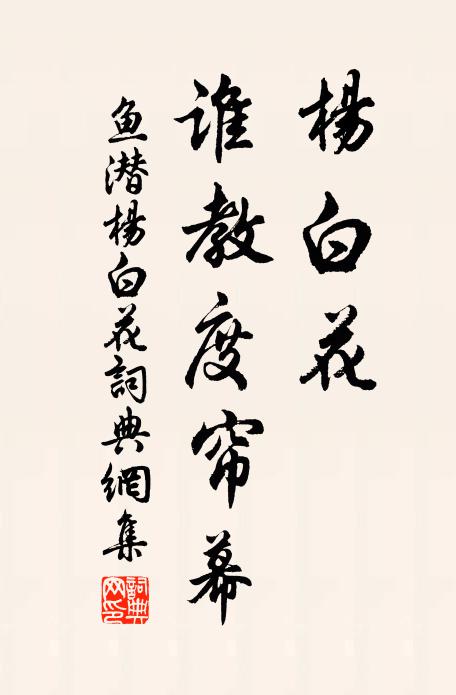 楊白花
誰教度帘幕
魚潜楊白花詞典網集
詞典网印